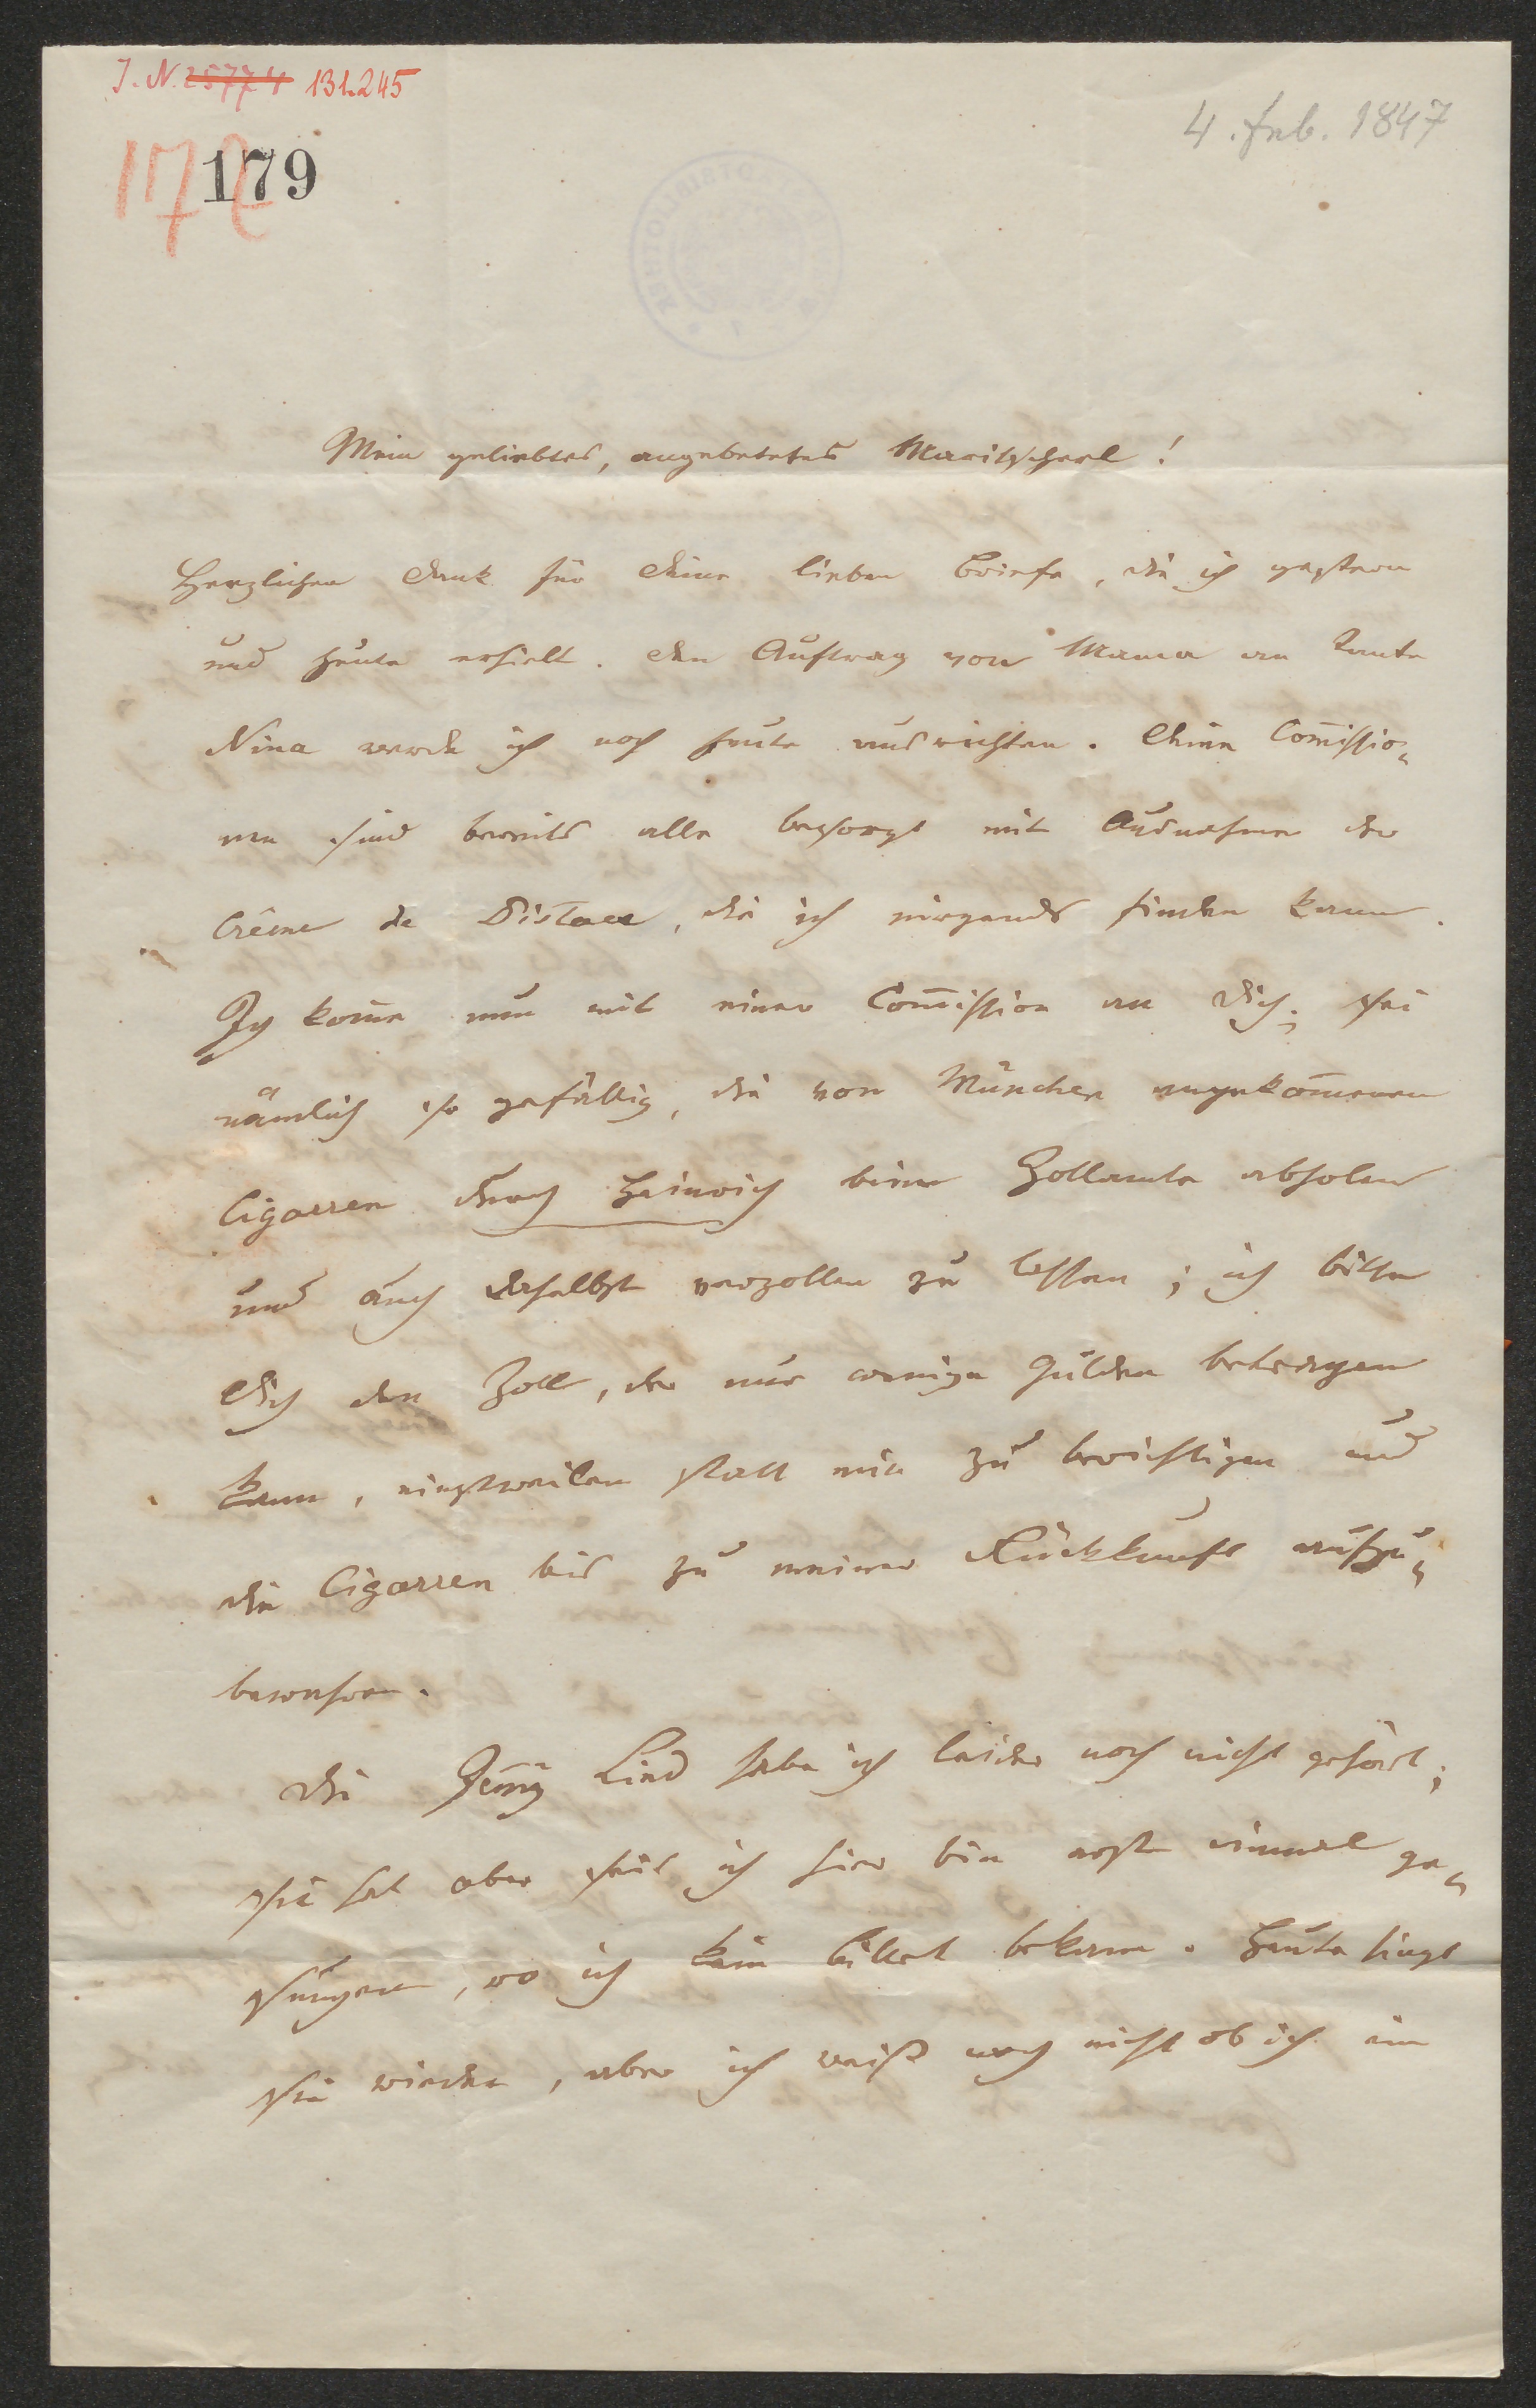 J. N. 25774 131.245
179
4. Feb. 1847
Mein geliebtes, angebetetes Maritscherl!
Herzlichen Dank für Deine lieben Briefe, die ich gestern
und heute erhielt. Den Auftrag von Mama an Tante
Nina werde ich noch heute ausrichten. Deine Com̅issio„
nen sind bereits alle besorgt mit Ausnahme der
Crême de , die ich nirgends finden kann.
Ich kom̅e nun mit einer Com̅ission an Dich; sei
nämlich so gefällig, die von München angekom̅enen
Cigarren durch Heinrich beim Zollamte abholen
und auch daselbst verzollen zu lassen; ich bitte
Dich den Zoll, der nur wenige Gulden betragen
kann, einstweilen statt mir zu berichtigen und
die Cigarren bis zu meiner Rückkunft aufzu„
bewahren.
Die Jen̅y Lind habe ich leider noch nicht gehört;
sie hat aber seit ich hier bin erst einmal ge„
sungen, wo ich kein Billet bekam. Heute singt
sie wieder, aber ich weiß noch nicht ob ich ein